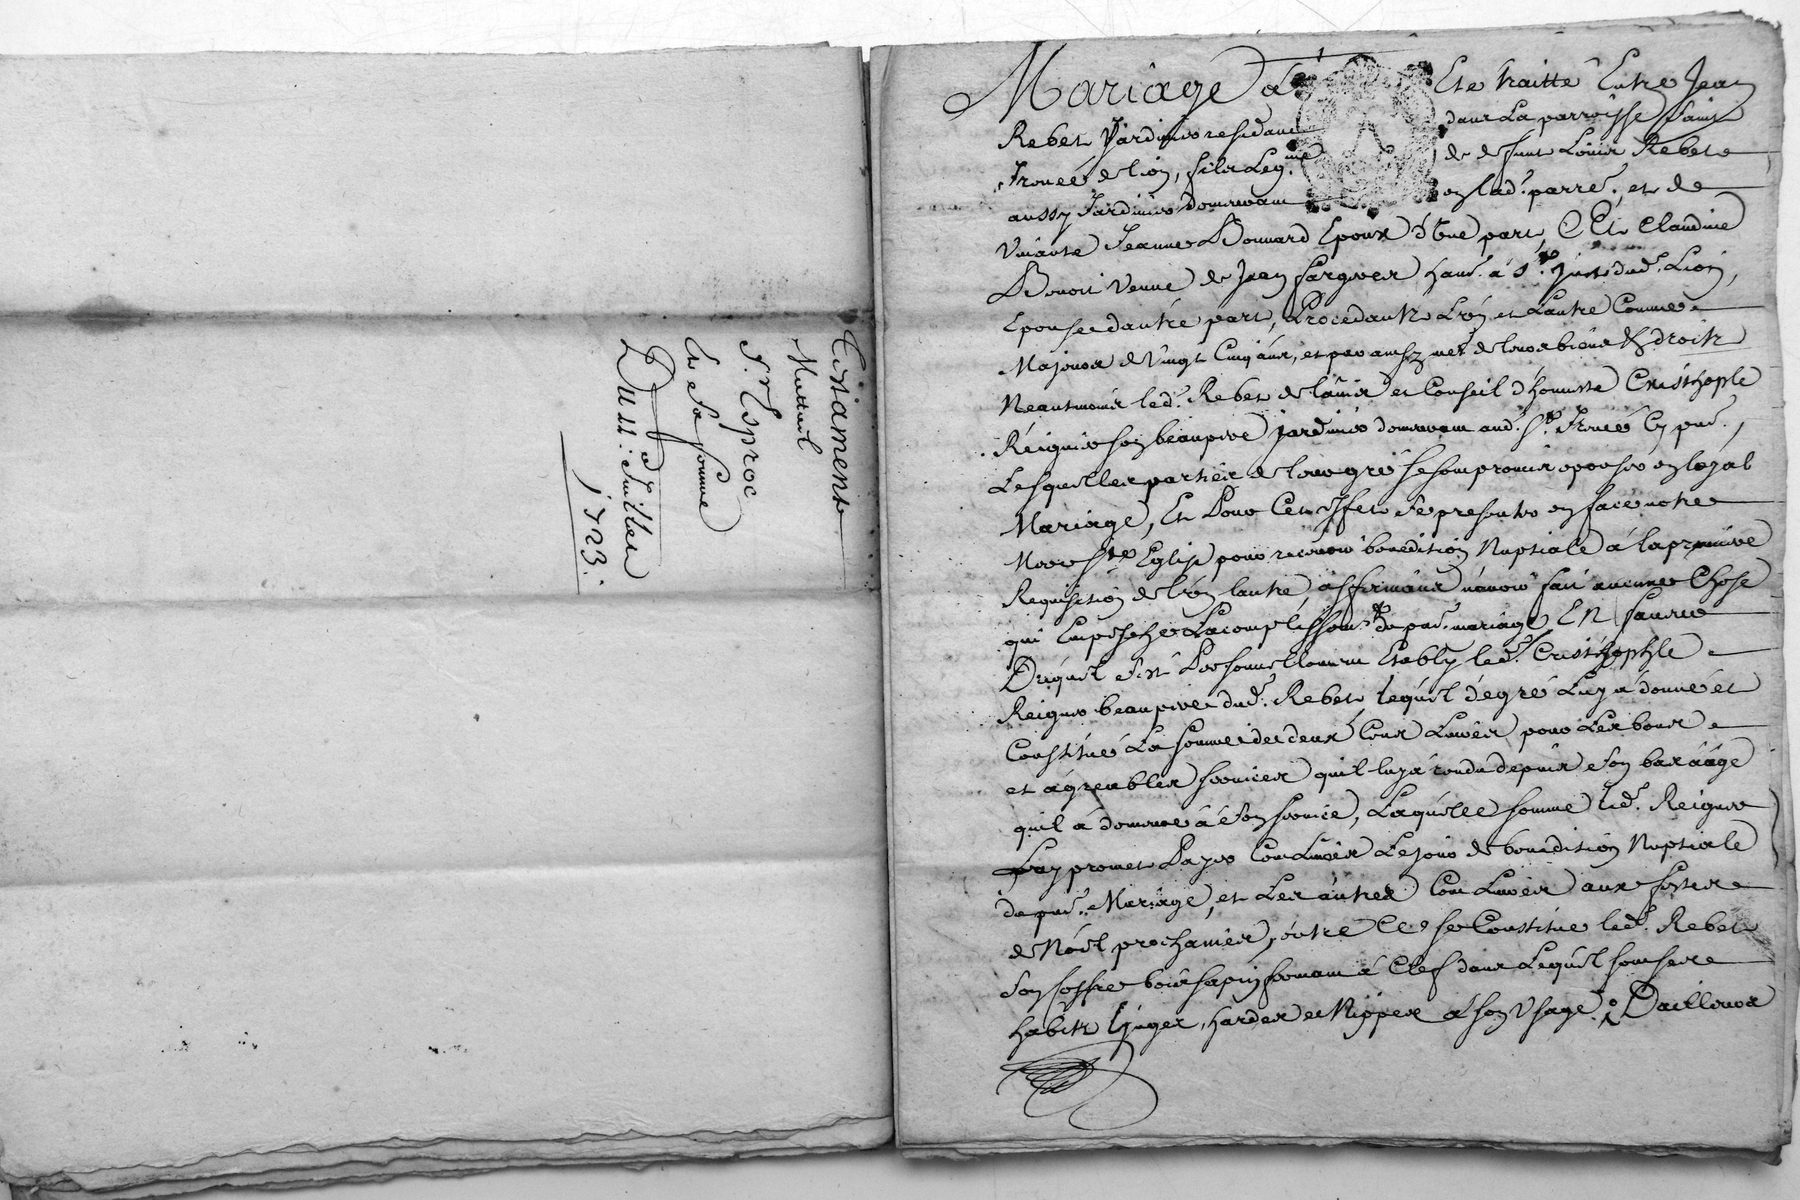 Testament
Mutuel
Sr. Esproc
Et Sa femme
Du 21: Juillet
1723:
Mariage a Esté traitté Entre Jean
Rebet Jardinier residant dans La parroisse Saint
Irenée de Lion, fils Leg.me de defunt Louis Rebet
aussy Jardinier demeurant en lad.e parr.e, et de
Vivante Jeanne Bonnard Epoux d'Une part, Et Claudine
Benoit Veuve de Jean hab.te à St. Just dud.t Lion,
Epouse dautre part, Procedants L'un et L'autre Comme
Majeurs de Vingt Cinq ans, et de leurs biens & droits
Neantmoins led.t Rebet de l'avis et Conseil d'honneste Cristhople
Reignier son beaupere jardinier demeurant aud.t St. Irenée Cy pnt.,
Lesquelles parties de leur gré se sont promis epouser en loyal
Mariage, Et Pour Cet Effet Se presenter en face notre
Mere Ste Eglise pour recevoir benedition Nuptiale à la premiere
Requisition de L'un lautre, affirmans n'avoir fait aucune Chose
qui Empesche L'acomplissem.t du pnt. mariage En faveur
Duquel s'est Personnellement Etably led.t Cristhophle
Reigner beaupere dud.t Rebet, lequel de gré Luy a donné et
Constitué La somme de deux Cens Livres pour Les bons
et agreables services quil luy a rendu depuis son bas aage
quil a demeuré à son service, Laquelle somme led.t Reigner
Luy promet Payer Cent Livres Le jour de benedition Nuptiale
du pnt. Mariage, et Les autres Cent Livres aux festes
de Noël prochaines, outre Ce se Constitue led.t Rebet
Son coffre bois sapin fermant à Clef dans Lequel sont ses
habits linges, hardes et Nippes a son Usage, D'ailleurs